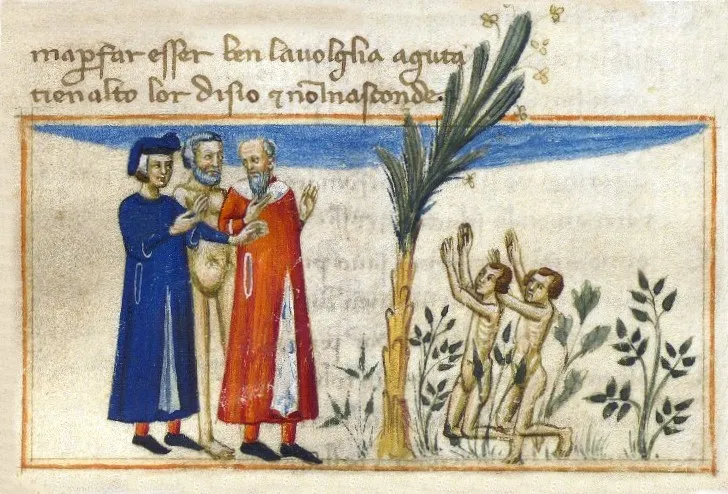 maꝑfar esser ben lauolglia aguta
tienalto lor disio ⁊ nōlnasconde.